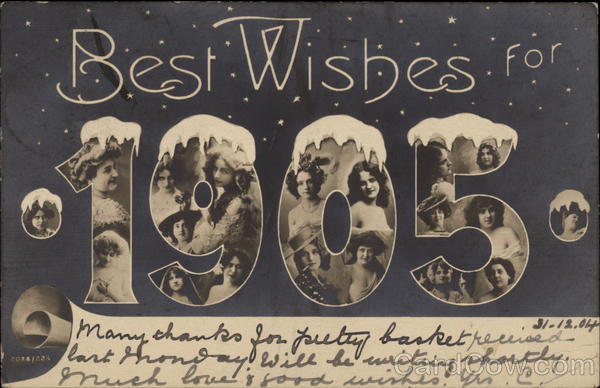 Best Wishes for
1905
31-12.04
Many thanks for pretty basket received
last Monday Will be writing shortly.
Much love & good wishes.
CardCow.com